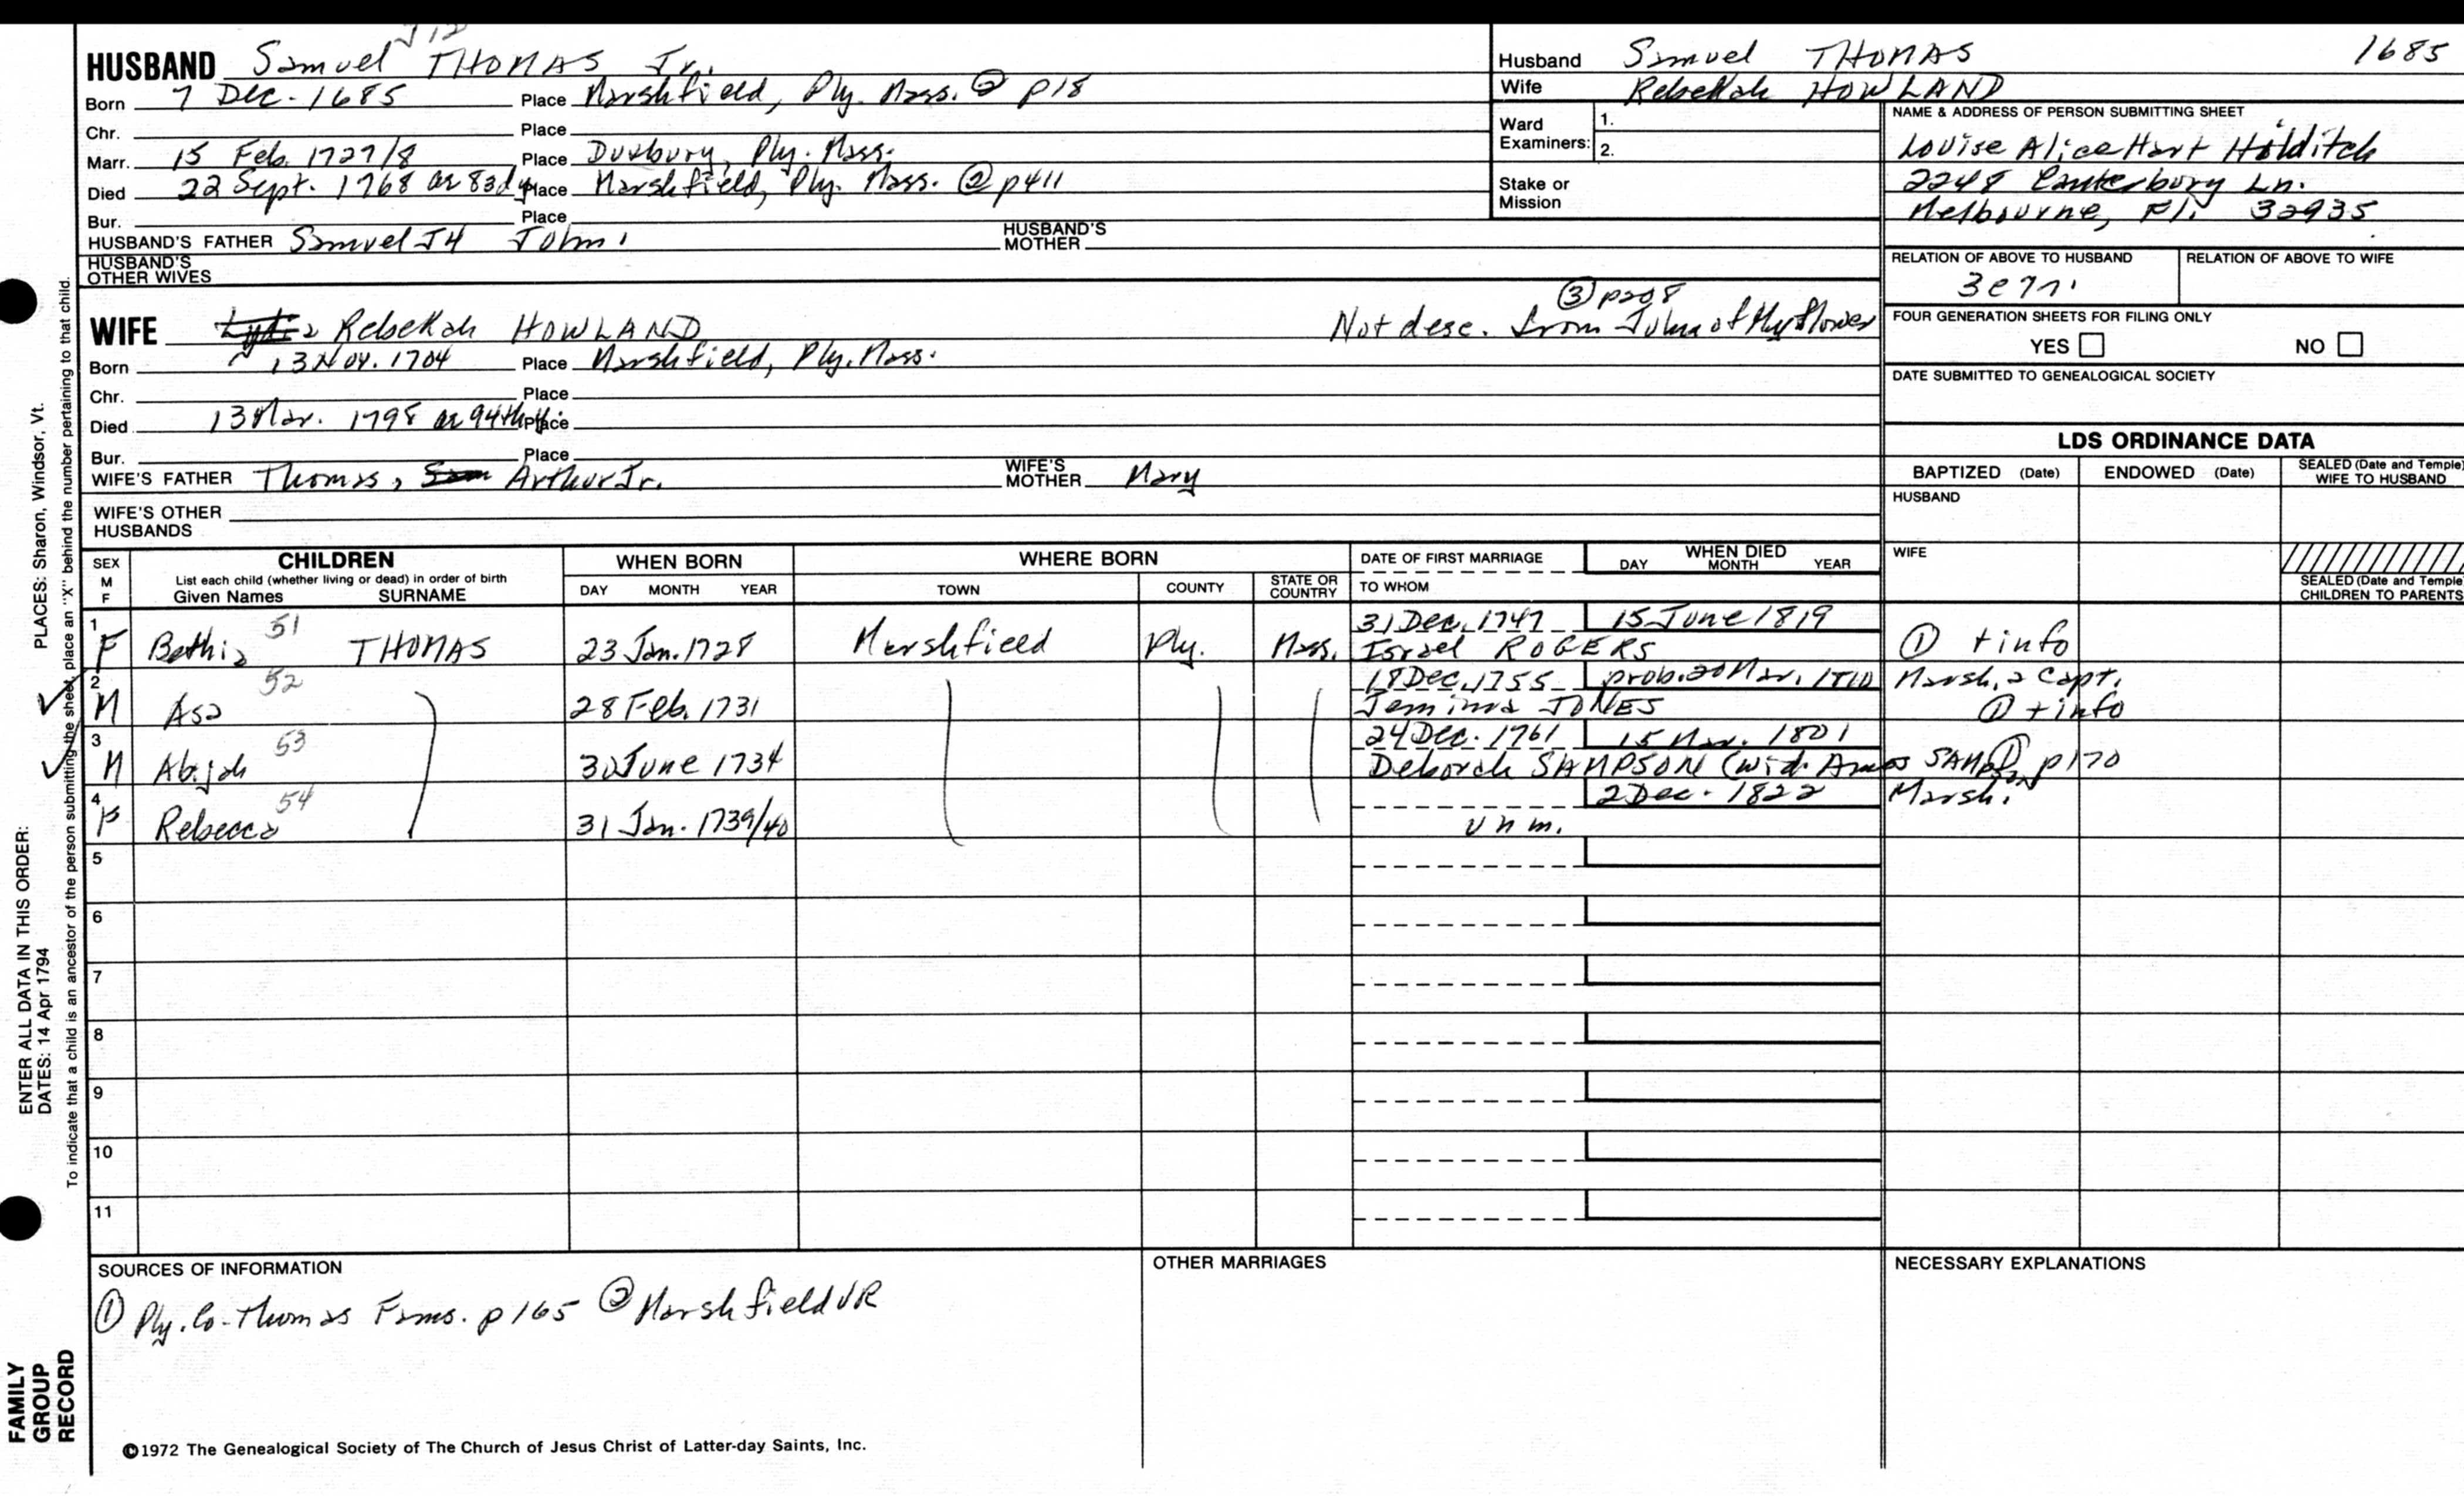 J12
HUSBAND Samuel THOMAS Jr.
Born 7 Dec. 1685 Place Marshfield, Ply. Mass. ② p18
Chr. Place
Marr. 15 Feb. 1727/8 Place Duxbury, Ply. Mass.
Died 22 Sept. 1768 ae 83d y Place Marshfield, Ply. Mass. ② p411
Bur. Place
HUSBAND'S FATHER Samuel J4 John 1 HUSBAND'S MOTHER
HUSBAND'S OTHER WIVES
Husband Samuel THOMAS 1685
Wife Rebekah HOWLAND
Ward Examiners: 1.
2.
Stake or Mission
NAME & ADDRESS OF PERSON SUBMITTING SHEET
Louise Alice Hart Holditch
2248 Canterbury Ln.
Melbourne, Fl. 32935
RELATION OF ABOVE TO HUSBAND RELATION OF ABOVE TO WIFE
FOUR GENERATION SHEETS FOR FILING ONLY
YES NO
DATE SUBMITTED TO GENEALOGICAL SOCIETY
③ p208
WIFE Lydia Rebekah HOWLAND Not desc. from John of Myflower
Born 13 Nov. 1704 Place Marshfield, Ply. Mass.
Chr. Place
Died 13 Mar. 1798 ae 94th y Place
Bur. Place
WIFE'S FATHER Thomas, Sam Arthur Jr. WIFE'S MOTHER Mary
WIFE'S OTHER HUSBANDS
LDS ORDINANCE DATA
BAPTIZED (Date) ENDOWED (Date) SEALED (Date and Temple) WIFE TO HUSBAND
HUSBAND
WIFE
SEALED (Date and Temple) CHILDREN TO PARENTS
SEX M F CHILDREN
List each child (whether living or dead) in order of birth
Given Names SURNAME
WHEN BORN DAY MONTH YEAR
WHERE BORN TOWN COUNTY STATE OR COUNTRY
DATE OF FIRST MARRIAGE TO WHOM
WHEN DIED DAY MONTH YEAR
1 51 31 Dec. 1747 15 June 1819
F Bethia THOMAS 23 Jan. 1728 Marshfield Ply. Mass. Israel ROGERS ① + info
2 52 18 Dec. 1755 prob. 20 Mar. Marsh. a Capt.
M Asa 28 Feb. 1731 Jemima JONES ① + info
3 53 24 Dec. 1761 15 Mar. 1801
M Abijah 30 June 1734 Deborah SAMPSON (wid. Amos SAMPSON ① p170
4 54 2 Dec. 1822 Marsh.
F Rebecca 31 Jan. 1739/40 unm.
5
6
7
8
9
10
11
SOURCES OF INFORMATION
① Ply. Co. Thomas Fams. p165 ② Marshfield VR
OTHER MARRIAGES
NECESSARY EXPLANATIONS
©1972 The Genealogical Society of The Church of Jesus Christ of Latter-day Saints, Inc.
FAMILY GROUP RECORD
ENTER ALL DATA IN THIS ORDER: PLACES: Sharon, Windsor, Vt.
DATES: 14 Apr 1794
To indicate that a child is an ancestor of the person submitting the sheet, place an "X" behind the number pertaining to that child.